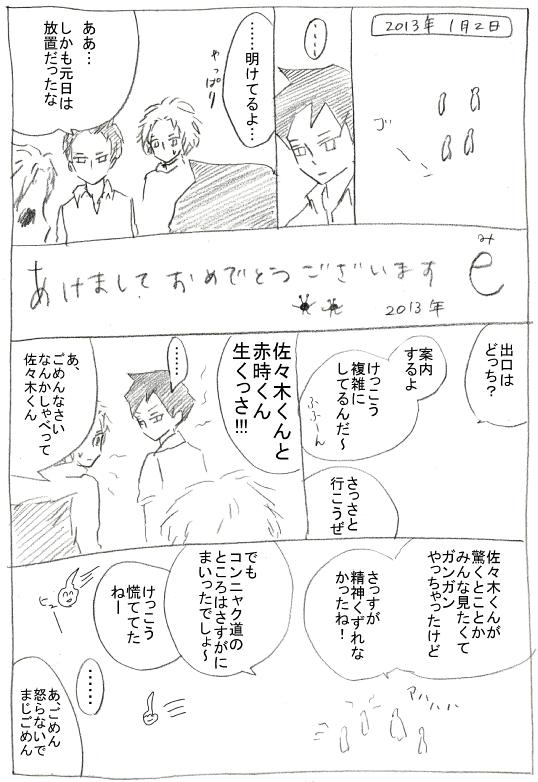 2013年 1月2日
ゴーン
……
……明けてるよ…
やっぱり
ああ…
しかも元日は
放置だったな
あけまして おめでとうございます
み
2013年
出口は
どっち?
案内
するよ
けっこう
複雑に
してるんだ～
ふふーん
さっさと
行こうぜ
佐々木くんと
赤時くん
生くっさ!!!
……
あ、
ごめんなさい
なんかしゃべって
佐々木くん
佐々木くんが
驚くとことか
みんな見たくて
ガンガン
やっちゃったけど
さっすが
精神くずれな
かったね!
アハハハ
でも
コンニャク道の
ところはさすがに
まいったでしょ～
けっこう
慌ててた
ねー
ヒュー
……
あ、ごめん
怒らないで
まじごめん